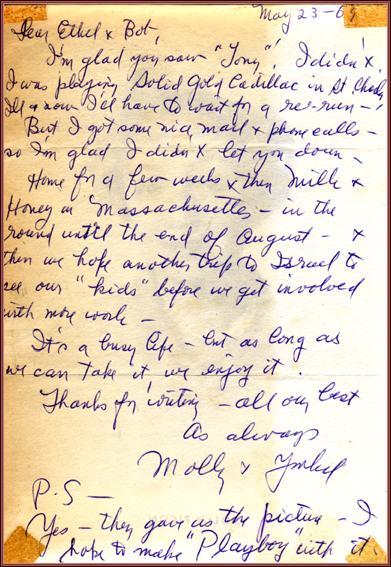 May 23-69
Dear Ethel & Bob,
I'm glad you saw "Tony"! I didn't
I was playing Solid Gold Cadillac in St Charles
Ill & now I'd have to wait for a re-run -!
But I got some nice mail & phone calls -
so I'm glad I didn't let you down -
Home for a few weeks & then Milk &
Honey in Massachusetts - in the
round until the end of August - &
then we hope another trip to Israel to
see our "kids" before we get involved
with more work -
It's a busy life - but as long as
we can take it, we enjoy it.
Thanks for writing - all our best
As always
Molly & Yonkel
P.S -
Yes - they gave us the picture - I
hope to make "Playboy" with it.